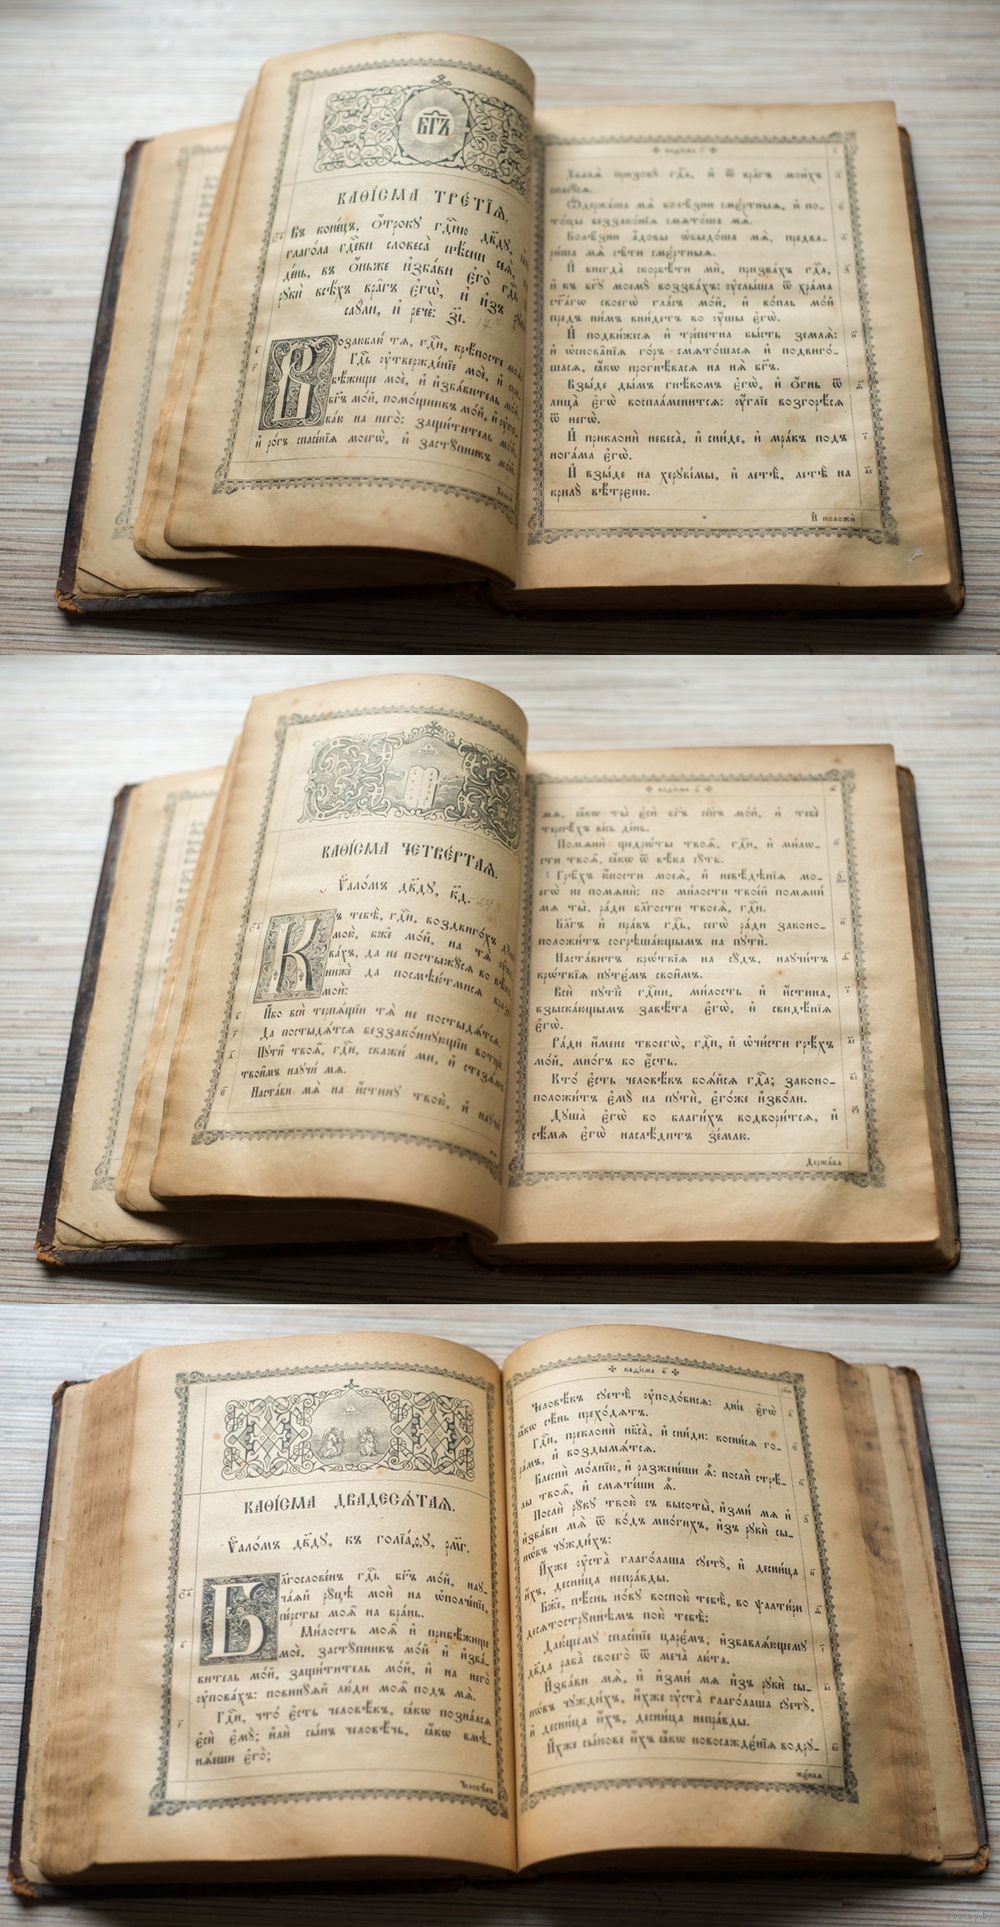 БГ҃Ъ
КАѲІ́СМА ТРЕ́ТІѦ.
Въ коне́цъ, ѻ҆́трокꙋ гдⷭ҇ню дв҃дꙋ,
глаго́ла гдⷭ҇еви словеса̀ пѣ́сни сеѧ̀,
де́нь, въ ѻ҆́ньже и҆зба́ви є҆го̀ гдⷭ҇ь
рꙋкѝ всѣ́хъ вра̑гъ є҆гѡ̀, и҆ и҆з̾ рꙋкѝ
саꙋ́ли, и҆ речѐ: з҃і.
Возлюблю́ тѧ, гдⷭ҇и, крѣ́посте моѧ̀.
Гдⷭ҇ь ᲂу҆твержде́нїе моѐ, и҆ при-
бѣ́жище моѐ, и҆ и҆зба́витель мо́й,
бг҃ъ мо́й, помо́щникъ мо́й, и҆ ᲂу҆по-
ва́ю на него̀: защи́титель мо́й,
и҆ ро́гъ спасе́нїѧ моегѡ̀, и҆ застꙋ́пникъ мо́й.
каѳі́сма г҃
Хвалѧ̀ призовꙋ̀ гдⷭ҇а, и҆ ѿ вра̑гъ мои́хъ
спасꙋ́сѧ.
Ѡ҆держа́ша мѧ̀ болѣ̑зни смє́ртныѧ, и҆ по-
то́цы беззако́нїѧ смѧто́ша мѧ̀.
Бѡлѣ́зни а҆́дѡвы ѡ҆быдо́ша мѧ̀, предва-
ри́ша мѧ̀ сѣ̑ти смє́ртныѧ.
И҆ внегда̀ скорбѣ́ти мѝ, призва́хъ гдⷭ҇а,
и҆ къ бг҃ꙋ моемꙋ̀ воззва́хъ: ᲂу҆слы́ша ѿ хра́ма
ст҃а́гѡ своегѡ̀ гла́съ мо́й, и҆ во́пль мо́й
пред̾ ни́мъ вни́детъ во ᲂу҆́шы є҆гѡ̀.
И҆ подви́жесѧ и҆ тре́петна бы́сть землѧ̀:
и҆ ѡ҆снова̑нїѧ го́ръ смѧто́шасѧ и҆ подвиго́-
шасѧ, ꙗ҆́кѡ прогнѣ́васѧ на нѧ̀ бг҃ъ.
Взы́де ды́мъ гнѣ́вомъ є҆гѡ̀, и҆ ѻ҆́гнь ѿ
лица̀ є҆гѡ̀ воспла́менитсѧ: ᲂу҆́глїе возгорѣ́сѧ
ѿ негѡ̀.
И҆ приклонѝ небеса̀, и҆ сни́де, и҆ мра́къ под̾
нога́ма є҆гѡ̀.
И҆ взы́де на херꙋві́мы, и҆ летѣ̀, летѣ̀ на
крилꙋ̀ вѣ́трєню.
И҆ положѝ
КАѲІ́СМА ЧЕТВЕ́РТАѦ.
Ѱало́мъ дв҃дꙋ, к҃д.
Къ тебѣ̀, гдⷭ҇и, воздвиго́хъ дꙋ́шꙋ
мою̀, бж҃е мо́й, на тѧ̀ ᲂу҆по-
ва́хъ, да не постыжꙋ́сѧ во вѣ́къ,
нижѐ да посмѣю́тмисѧ вразѝ
моѝ:
И҆́бо всѝ терпѧ́щїи тѧ̀ не постыдѧ́тсѧ.
Да постыдѧ́тсѧ беззако́ннꙋющїи вотщѐ.
Пꙋти̑ твоѧ̑, гдⷭ҇и, скажи́ ми, и҆ стезѧ́мъ
твои̑мъ наꙋчи́ мѧ.
Наста́ви мѧ̀ на и҆́стинꙋ твою̀, и҆ наꙋчи́
каѳі́сма д҃
мѧ̀, ꙗ҆́кѡ ты̀ є҆сѝ бг҃ъ сп҃съ мо́й, и҆ тебѐ
терпѣ́хъ ве́сь де́нь.
Помѧнѝ щедрѡ́ты твоѧ̑, гдⷭ҇и, и҆ ми́лѡ-
сти твоѧ̑, ꙗ҆́кѡ ѿ вѣ́ка сꙋ́ть.
Грѣ̑хъ ю҆́ности моеѧ̀, и҆ невѣ́дѣнїѧ мо-
егѡ̀ не помѧнѝ: по ми́лости твое́й помѧнѝ
мѧ ты̀, ра́ди бл҃гости твоеѧ̀, гдⷭ҇и.
Бл҃гъ и҆ пра́въ гдⷭ҇ь, сегѡ̀ ра́ди законо-
положи́тъ согрѣша́ющымъ на пꙋтѝ.
Наста́витъ крѡ́ткїѧ на сꙋ́дъ, наꙋчи́тъ
крѡ́ткїѧ пꙋтє́мъ свои̑мъ.
Всѝ пꙋтїѐ гдⷭ҇ни, ми́лость и҆ и҆́стина,
взыска́ющымъ завѣ́та є҆гѡ̀, и҆ свидѣ̑нїѧ
є҆гѡ̀.
Ра́ди и҆́мене твоегѡ̀, гдⷭ҇и, и҆ ѡ҆чи́сти грѣ́хъ
мо́й, мно́гъ бо є҆́сть.
Кто́ є҆сть человѣ́къ боѧ́йсѧ гдⷭ҇а; законо-
положи́тъ є҆мꙋ̀ на пꙋтѝ, є҆го́же и҆зво́ли.
Дꙋша̀ є҆гѡ̀ во благи́хъ водвори́тсѧ, и҆
сѣ́мѧ є҆гѡ̀ наслѣ́дитъ зе́млю.
Держа́ва
КАѲІ́СМА ДВАДЕСѦ́ТАѦ.
Ѱало́мъ дв҃дꙋ, къ голїа́дꙋ, рм҃г.
Благослове́нъ гдⷭ҇ь бг҃ъ мо́й, наꙋ-
ча́ѧй рꙋ́цѣ моѝ на ѡ҆полче́нїе,
пе́рсты моѧ̑ на бра́нь.
Ми́лость моѧ̀ и҆ прибѣ́жище
моѐ, застꙋ́пникъ мо́й и҆ и҆зба́-
витель мо́й, защи́титель мо́й, и҆ на него̀
ᲂу҆пова́хъ: повинꙋ́ѧй лю́ди моѧ̑ под̾ мѧ̀.
Гдⷭ҇и, что̀ є҆́сть человѣ́къ, ꙗ҆́кѡ позна́лсѧ
є҆сѝ є҆мꙋ̀; и҆лѝ сы́нъ человѣ́чь, ꙗ҆́кѡ вмѣ-
нѧ́еши є҆го̀;
Человѣ́къ
каѳі́сма к҃
Человѣ́къ сꙋетѣ̀ ᲂу҆подо́бисѧ: дні́е є҆гѡ̀
ꙗ҆́кѡ сѣ́нь прехо́дѧтъ.
Гдⷭ҇и, приклонѝ нб҃са̀, и҆ сни́ди: косни́сѧ го-
ра́мъ, и҆ воздымѧ́тсѧ.
Блеснѝ мо́лнїю, и҆ разжене́ши ѧ҆̀: послѝ стрѣ́-
лы твоѧ̑, и҆ смѧте́ши ѧ҆̀.
Послѝ рꙋ́кꙋ твою̀ съ высоты̀, и҆зми́ мѧ и҆
и҆зба́ви мѧ̀ ѿ во́дъ мно́гихъ, и҆з̾ рꙋкѝ сы-
нѡ́въ чꙋжди́хъ:
И҆́хже ᲂу҆ста̀ глаго́лаша сꙋетꙋ̀, и҆ десни́ца
и҆́хъ, десни́ца непра́вды.
Бж҃е, пѣ́снь но́вꙋ воспою̀ тебѣ̀, во ѱалти́ри
десѧтострꙋ́ннѣмъ пою̀ тебѣ̀:
Даю́щемꙋ спасе́нїе царє́мъ, и҆збавлѧ́ющемꙋ
дв҃да раба̀ своего̀ ѿ меча̀ лю́та.
И҆зба́ви мѧ̀, и҆ и҆зми́ мѧ и҆з̾ рꙋкѝ сы-
нѡ́въ чꙋжди́хъ, и҆́хже ᲂу҆ста̀ глаго́лаша сꙋетꙋ̀,
и҆ десни́ца и҆́хъ, десни́ца непра́вды.
И҆́хже сы́нове и҆́хъ ꙗ҆́кѡ новосаждє́нїѧ водрꙋ-
же́наѧ